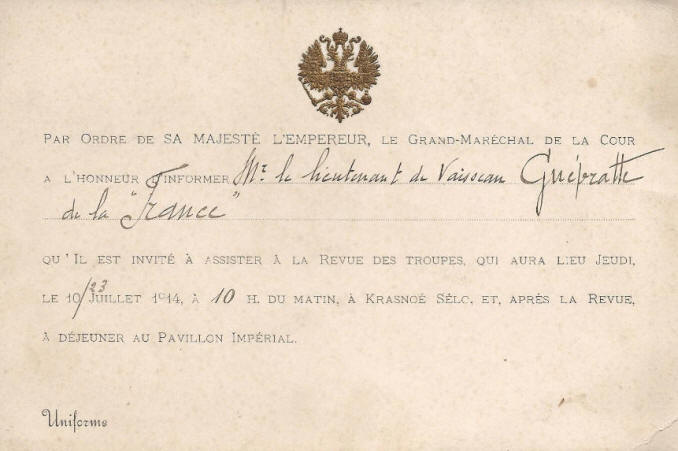 PAR ORDRE DE SA MAJESTÉ L'EMPEREUR, LE GRAND-MARÉCHAL DE LA COUR
A L'HONNEUR D'INFORMER Mr. le lieutenant de Vaisseau Guépratte
de la "France"
QU'IL EST INVITÉ À ASSISTER À LA REVUE DES TROUPES, QUI AURA LIEU JEUDI,
LE 10/23 JUILLET 1914, À 10 H. DU MATIN, À KRASNOÉ SÉLO, ET, APRÈS LA REVUE,
À DÉJEUNER AU PAVILLON IMPÉRIAL.
Uniforme